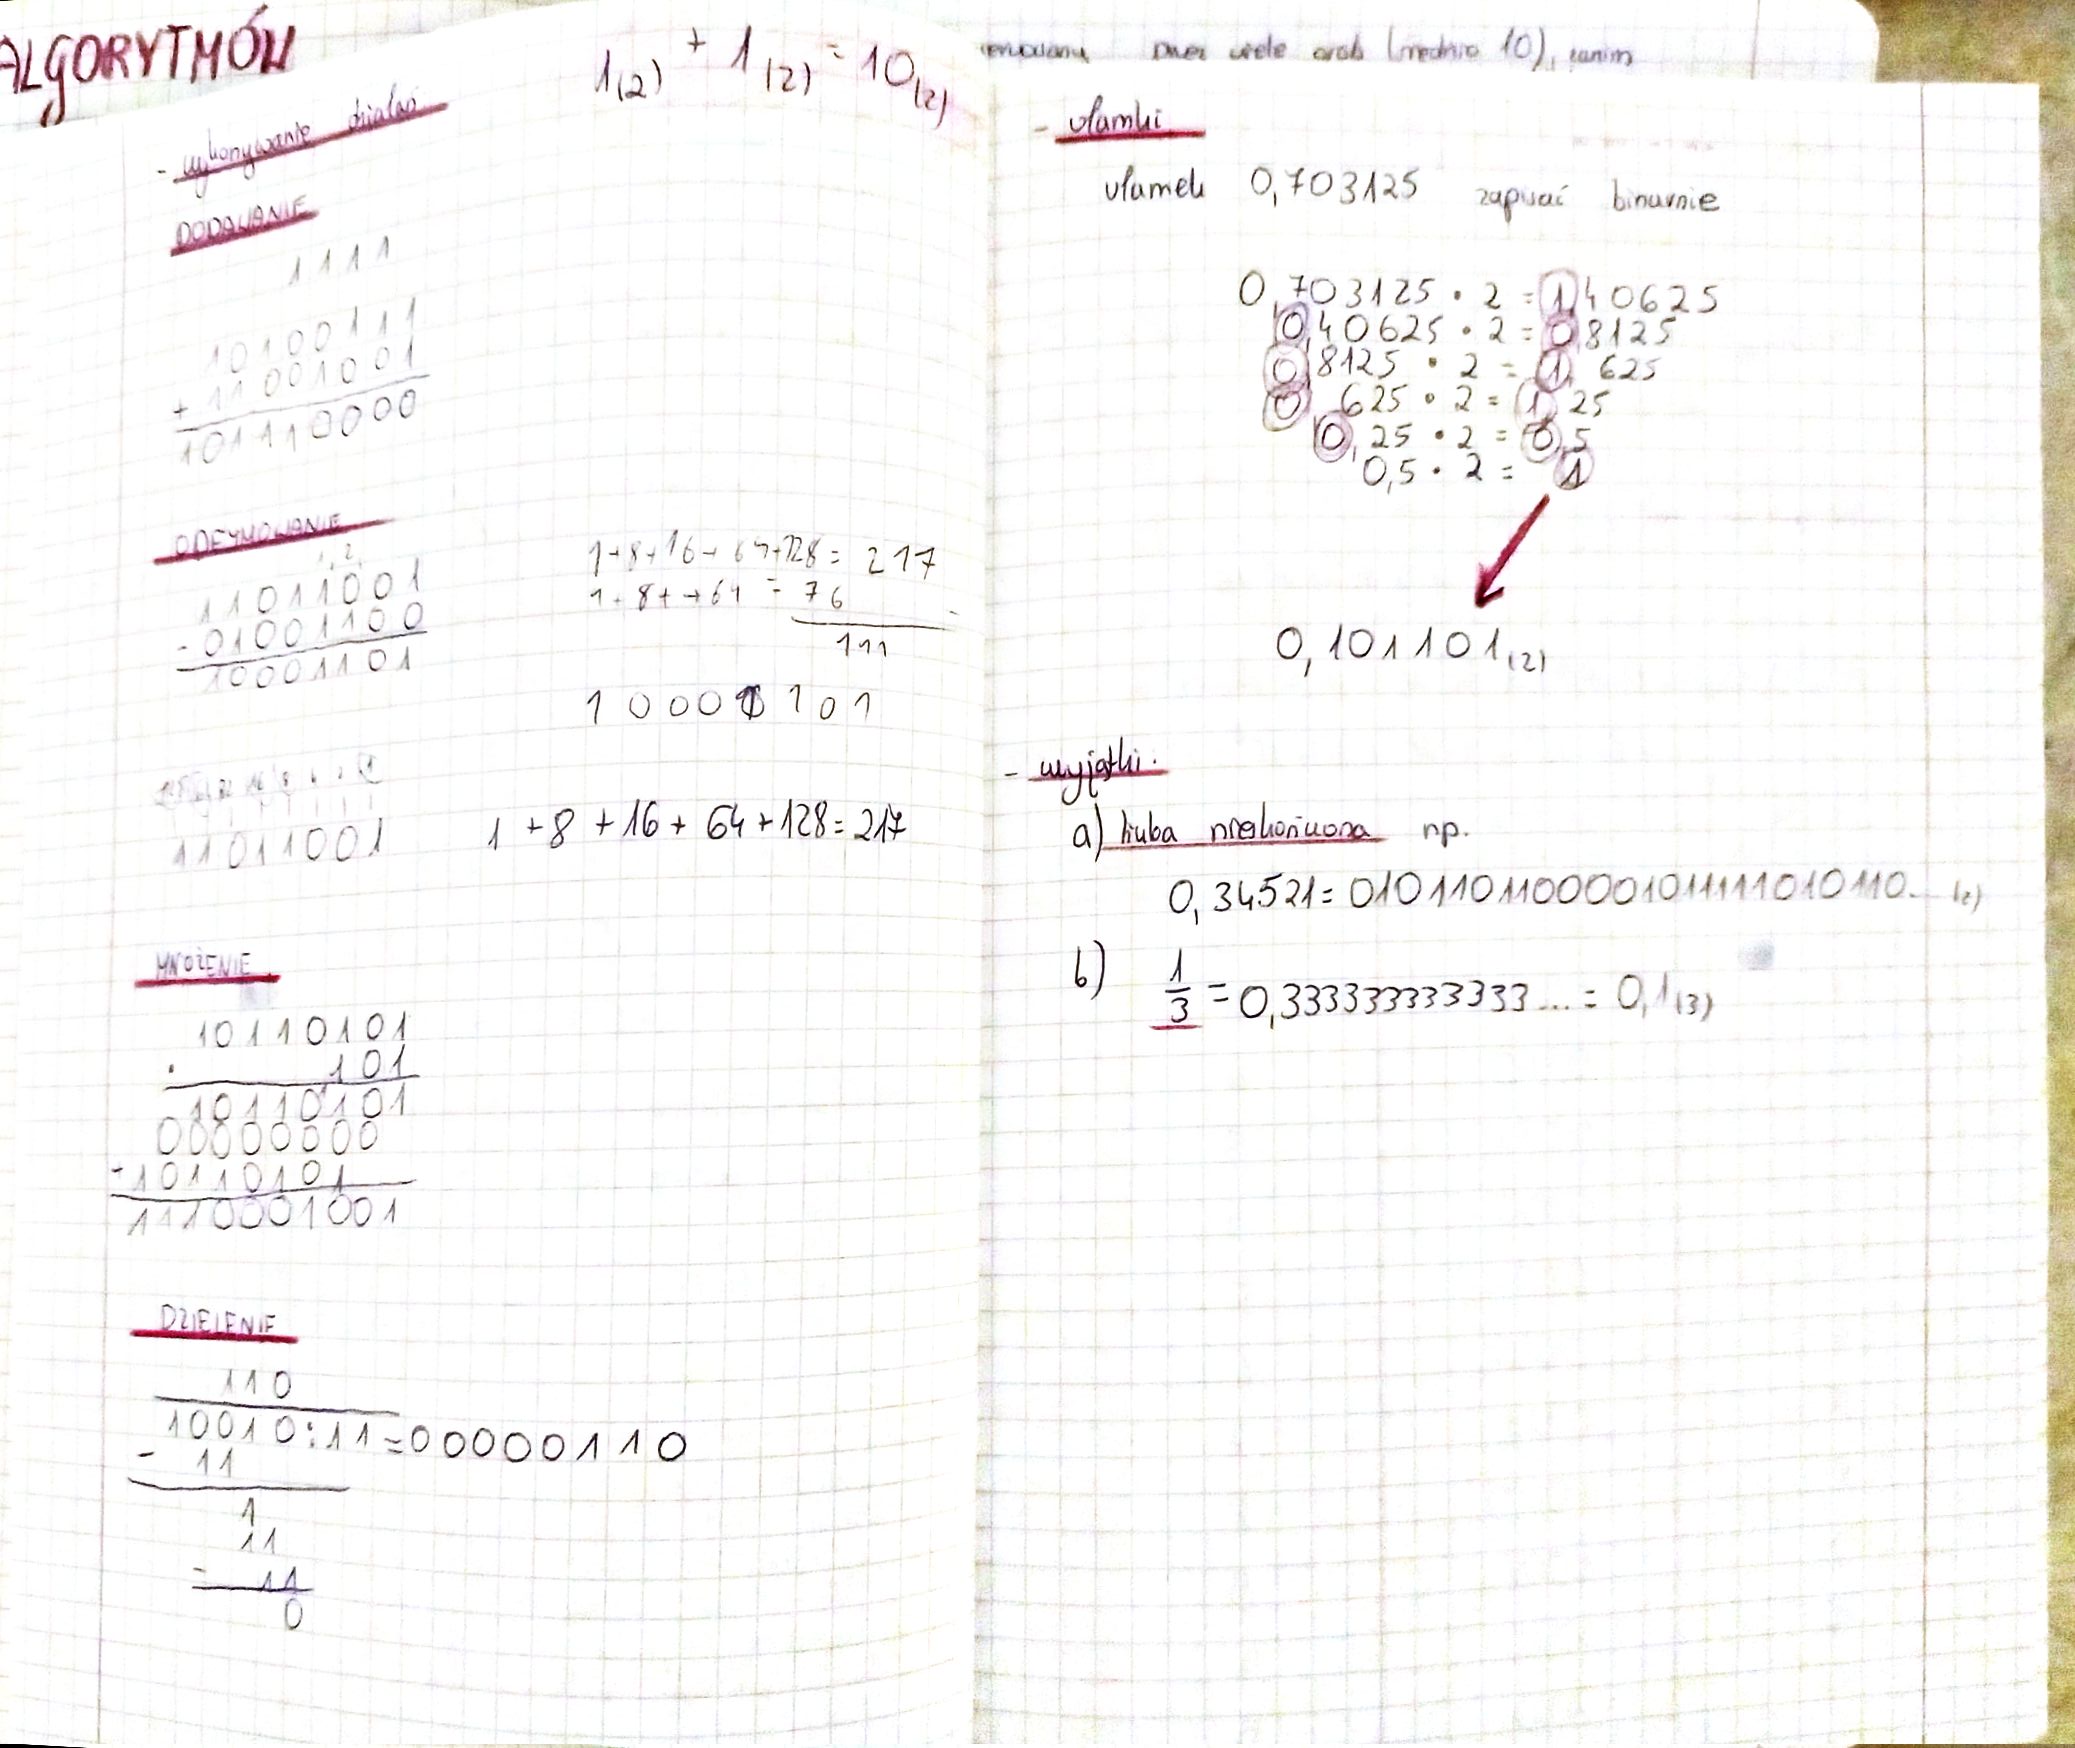 ALGORYTMÓW
1(2) + 1(2) = 10(2)
- wykonywanie działań
DODAWANIE
1 1 1 1
10100111
+ 11001001
101110000
ODEJMOWANIE
2
11011001
- 01001100
10001101
1+8+16+64+128= 217
1+8+ +64 = 76
111
1 0 0 0 1 1 0 1
16 8
11011001
1 +8 +16 + 64 +128= 217
MNOŻENIE
10110101
· 101
10110101
00000000
-10110101
1110001001
DZIELENIE
110
10010:11=00000110
- 11
1
11
- 11
0
średnio 10), zanim
- ułamki
ułamek 0,703125 zapisać binarnie
0,703125 · 2 = 1,40625
0,40625 · 2 = 0,8125
0,8125 · 2 = 1,625
0,625 · 2 = 1,25
0,25 · 2 = 0,5
0,5 · 2 = 1
0,101101(2)
- wyjątki.
a) liczba nieskończona np.
0,34521= 01011011000010111110101 10... (2)
b) 1/3 = 0,333333333333... = 0,1(3)